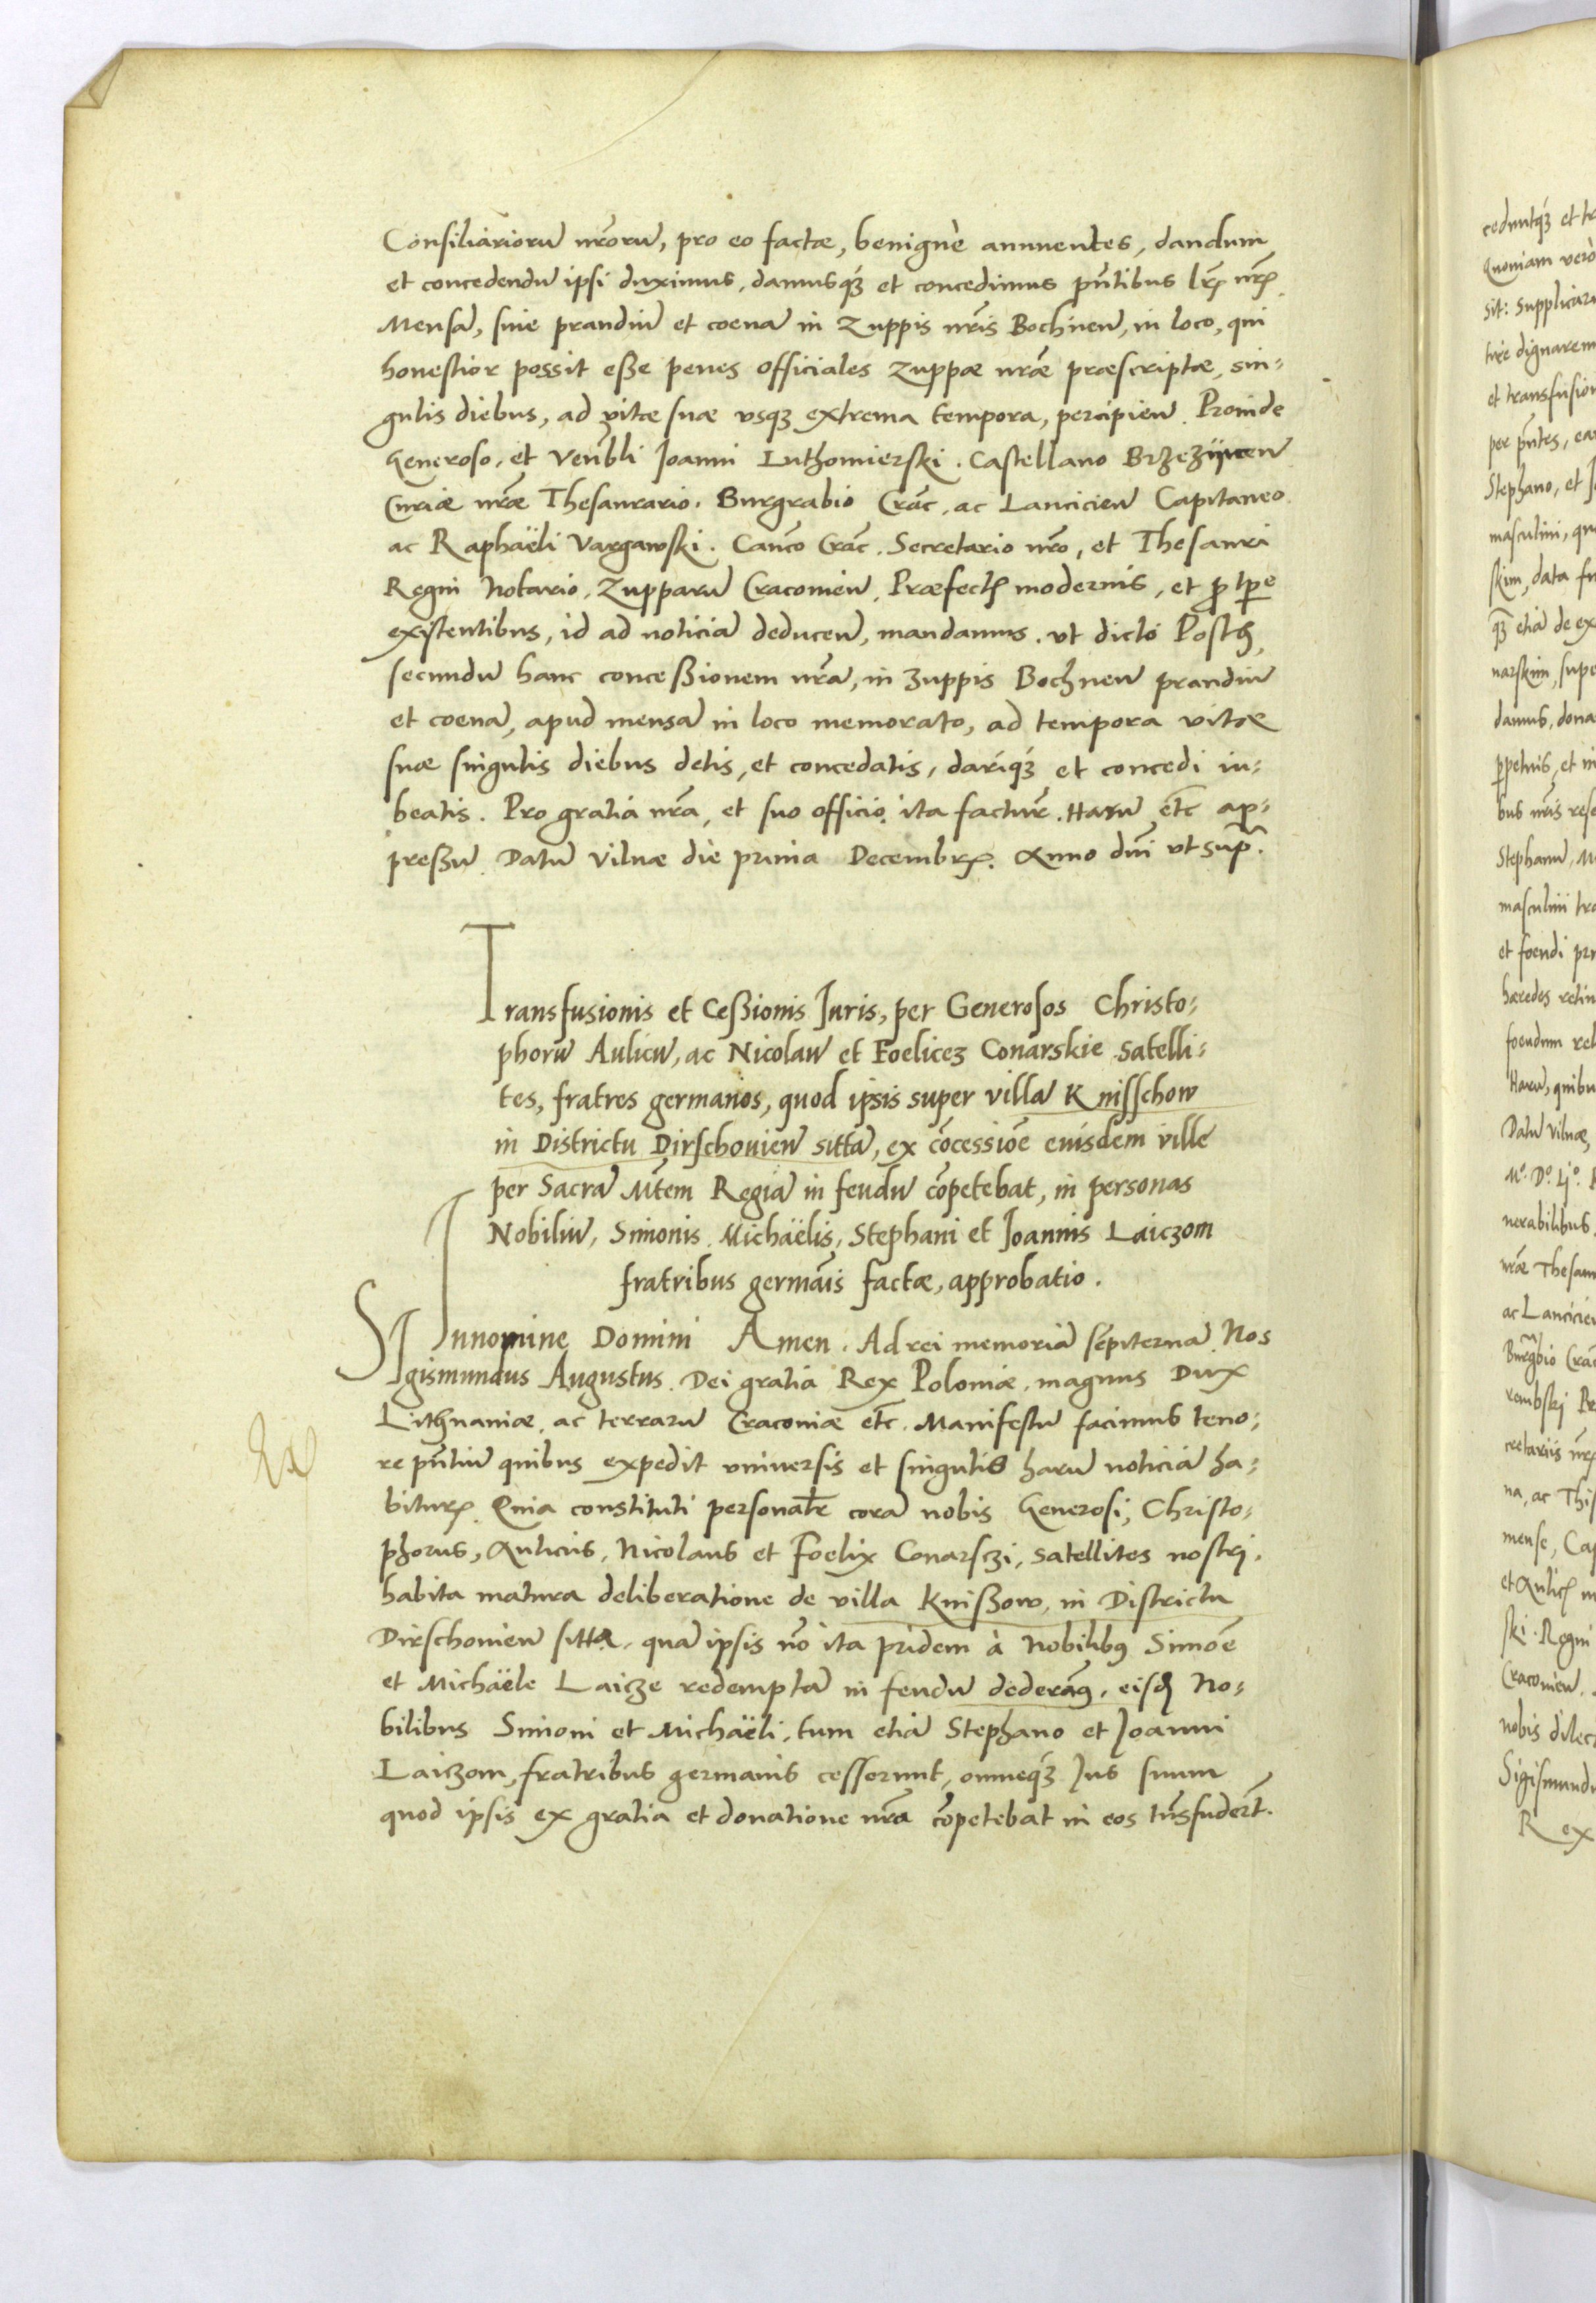 Consiliariorū nr̄orū, pro eo factæ, benignè annuentes, dandum
et concedendū ipsi duximus, damusq́ꝫ et concedimus pn̄tibus lrꝭ nrꝭ.
Mensā, siue prandiū et coenā in Zuppis nr̄is Bochnen̄, in loco, qui
honestior possit eße penes officiales Zuppæ nr̄æ præscriptæ, sin-
gulis diebus, ad vitæ suæ vsqꝫ extrema tempora, percipien̄. Proinde
Generoso, et Venr̄bli Joanni Luthomierski. Castellano Brzezijnen̄
Curiæ nr̄æ Thesaurario. Burgrabio Crac̄. ac Lancicien̄ Capitaneo
ac Raphaëli Vargawski. Canc̄o Crac̄. Secretario nr̄o, et Thesauri
Regni Notario, Zupparū Cracouien̄. Præfectꝭ modernis, et ꝓ tꝑe
existentibus, id ad noticiā deducen̄, mandamus. vt dicto Postꝭ
secundū hanc conceßionem nr̄ā, in zuppis Bochnen̄ prandiū
et coenā, apud mensā in loco memorato, ad tempora vitæ
suæ singulis diebus detis, et concedatis, dariq́ꝫ et concedi iu-
beatis. Pro gratia nr̄a, et suo officio ita factur̄. Harū etc̄ ap-
preßū. Datū Vilnæ die prima Decembrꝭ. Anno dn̄i vt sup̄.
Transfusionis et Ceßionis Juris, per Generosos Christo-
phorū Aulicū, ac Nicolaū et Foeliceꝫ Conarskie satelli-
tes, fratres germanos, quod ipsis super villa Knisschow
in Districtu Dirschouien̄ sittā, ex cōcessiōe eiusdem ville
per Sacrā Mt̄em Regiā in feudū cōpetebat, in personas
Nobiliū, Simonis. Michaëlis, Stephani et Joannis Laiczom
fratribus germāis factæ, approbatio.
In nomine Domini Amen. Ad rei memoriā sēpiternā. Nos
SIgismundus Augustus. Dei gratia Rex Poloniæ, magnus Dux
Lithuaniæ, ac terrarū Cracouiæ etc̄. Manifestū facimus teno-
re pn̄tiū quibus expedit vniuersis et singulis harū noticiā ha-
biturꝭ. Quia constituti personalr̄ corā nobis Generosi, Christo-
phorus, Aulicus, Nicolaus et Foelix Conarsczi, satellites nostri.
habita matura deliberatione de villa Knißow, in Districtu
Dirschouien̄ sitta, quā ipsis nō ita pridem à Nobilibꝰ Simōe
et Michaële Laicze redemptā in feudū dederamꝰ. eisdꝭ No-
bilibus Simoni et Michaëli, tum etiā Stephano et Joanni
Laiczom, fratribus germanis cesserunt, omneq́ꝫ Jus suum
quod ipsis ex gratia et donatione nr̄a cōpetebat in eos trn̄sfuder̄t.
ceduntq́ꝫ et tr
Quoniam verò
sit: supplicar
tire dignarem
et transfusion
per pn̄tes, ea
Stephano, et J
masculini, qu
skim, data fu
qꝫ etiā de ex
narskim, supe
damus, dona
ꝑpetuis, et in
bus nr̄is rese
Stephanū, M
masculini tra
et foeudi pri
hæredes retin
foeudum rel
Harū, quibu
Datū Vilnæ,
Mo. Do. Ljo.
nerabilibus
nr̄æ Thesau
ac Lancicien
Burḡbio Crac̄
rembski Pr
cretariis nrꝭ
na, ac Thi
mense, Cap
et Aulicꝭ n
ski. Regni
Cracouien̄.
nobis dilec
Sigismundu
Rex